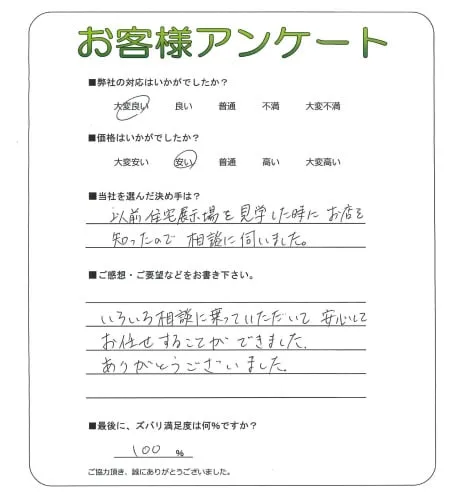 お客様アンケート
■弊社の対応はいかがでしたか？
大変良い 良い 普通 不満 大変不満
■価格はいかがでしたか？
大変安い 安い 普通 高い 大変高い
■当社を選んだ決め手は？
以前住宅展示場を見学した時にお店を
知ったので相談に伺いました。
■ご感想・ご要望などをお書き下さい。
いろいろ相談に乗っていただいて安心して
お任せすることができました。
ありがとうございました。
■最後に、ズバリ満足度は何％ですか？
100 ％
ご協力頂き、誠にありがとうございました。